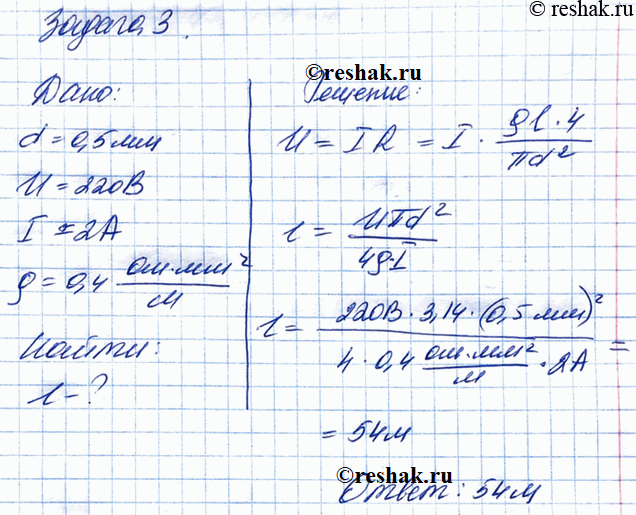 © reshak.ru
Задача 3.
©reshak.ru
Дано:
d = 0,5 мм
U = 220 В
I = 2А
ρ = 0,4 ом·мм²/м
Найти:
l - ?
Решение:
U = IR = I · ρl·4/πd²
l = Uπd²/4ρI
l = 220В · 3,14 · (0,5 мм)²/4 · 0,4 ом·мм²/м · 2А =
= 54м
©reshak.ru
Ответ: 54м
© reshak.ru